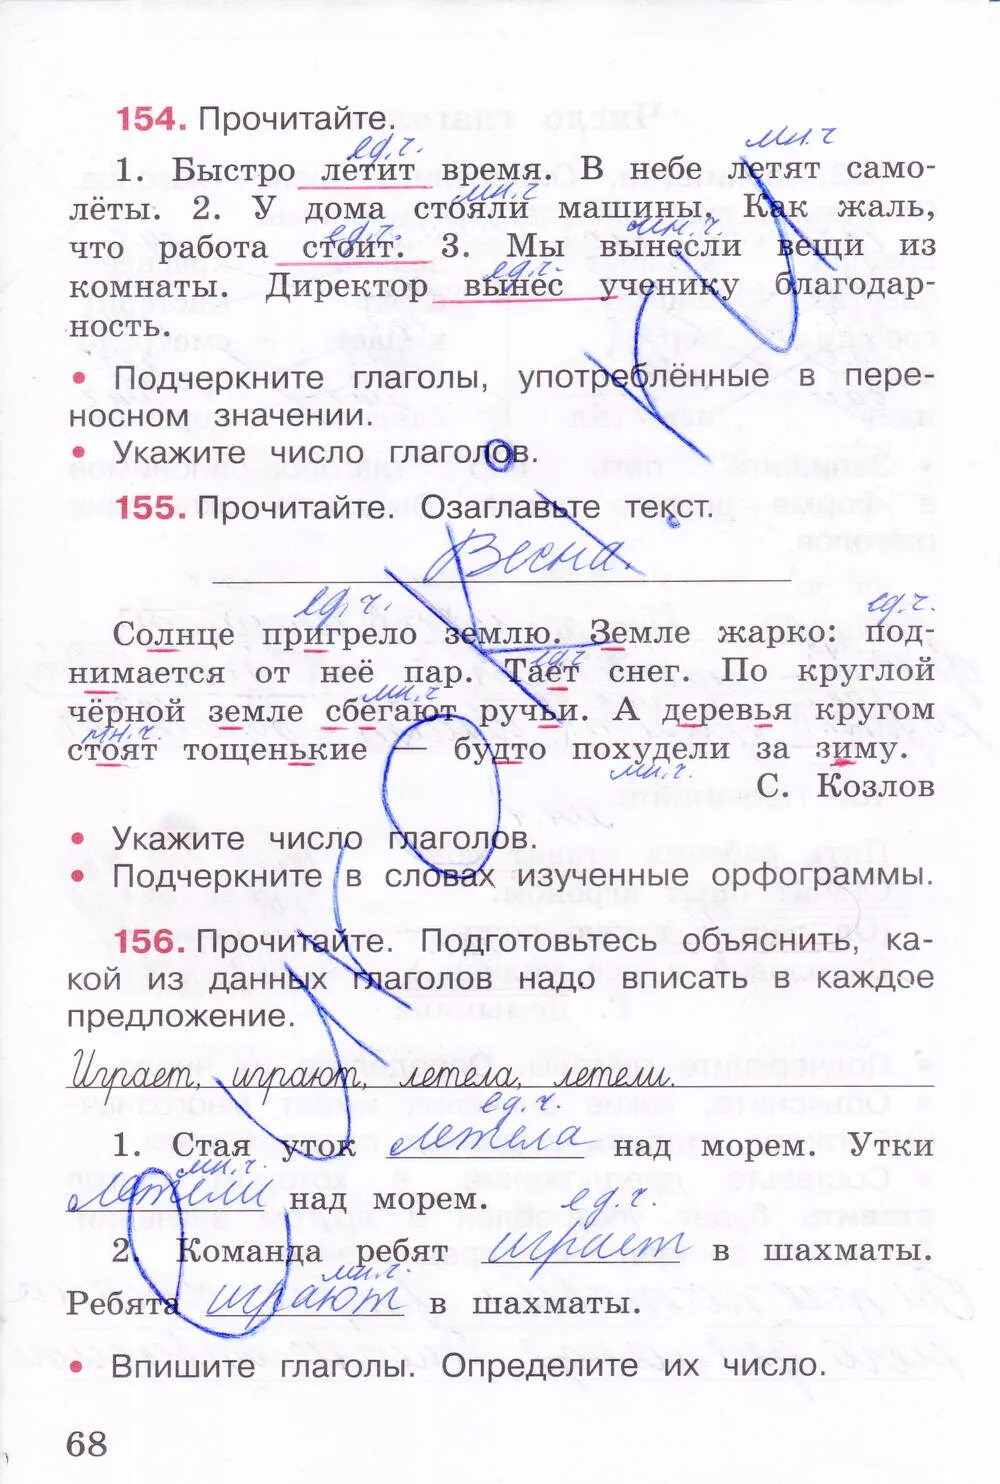 154. Прочитайте.
ед.ч. мн.ч
1. Быстро летит время. В небе летят само-
мн.ч
лёты. 2. У дома стояли машины. Как жаль,
ед.ч. мн.ч.
что работа стоит. 3. Мы вынесли вещи из
ед.ч.
комнаты. Директор вынес ученику благодар-
ность.
• Подчеркните глаголы, употреблённые в пере-
носном значении.
• Укажите число глаголов.
155. Прочитайте. Озаглавьте текст.
Весна.
ед.ч. ед.ч.
Солнце пригрело землю. Земле жарко: под-
ед.ч
нимается от неё пар. Тает снег. По круглой
мн.ч
чёрной земле сбегают ручьи. А деревья кругом
мн.ч.
стоят тощенькие — будто похудели за зиму.
мн.ч.
С. Козлов
• Укажите число глаголов.
• Подчеркните в словах изученные орфограммы.
156. Прочитайте. Подготовьтесь объяснить, ка-
кой из данных глаголов надо вписать в каждое
предложение.
Играет, играют, летела, летели.
ед.ч.
1. Стая уток летела над морем. Утки
мн.ч.
летели над морем.
ед.ч.
2. Команда ребят играет в шахматы.
мн.ч.
Ребята играют в шахматы.
• Впишите глаголы. Определите их число.
68